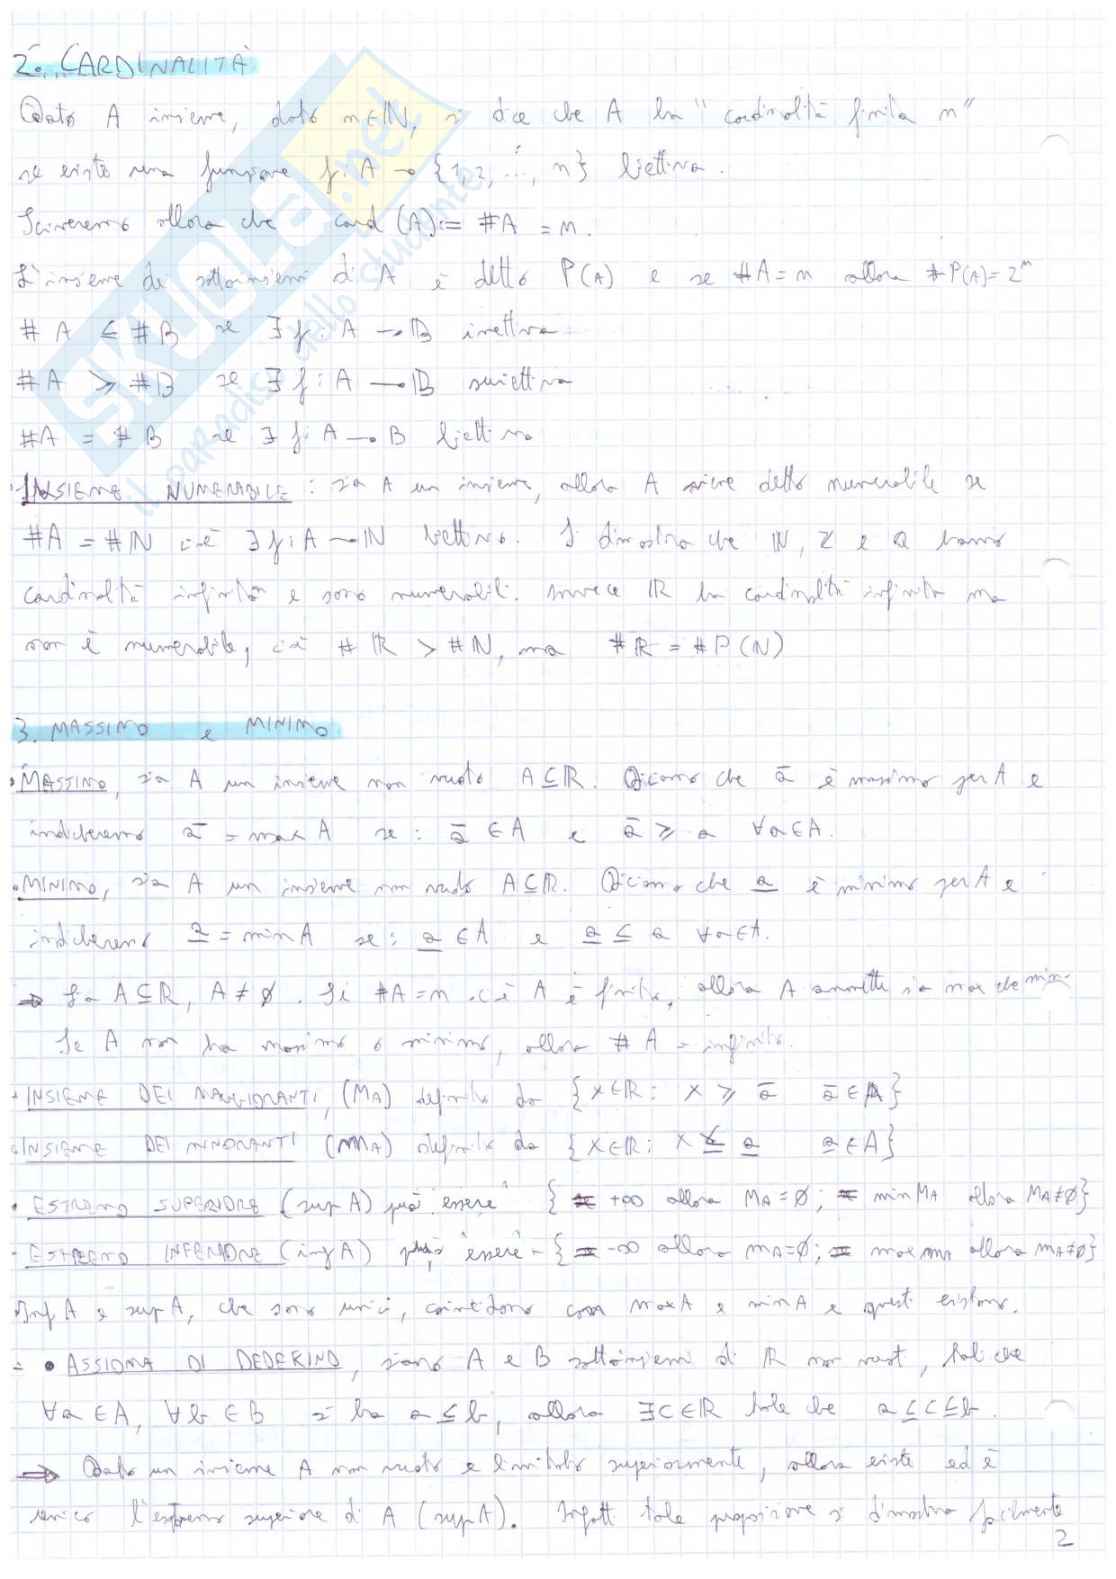 2. CARDINALITÀ
Dato A insieme, dato n∈ℕ, si dice che A ha "cardinalità finita n"
se esiste una funzione f: A → {1,2, ..., n} biettiva.
Scriveremo allora che card (A):= #A = n.
L'insieme dei sottoinsiemi di A è detto P(A) e se #A = n allora #P(A)= 2ⁿ
# A ≤ # B se ∃ f: A → B iniettiva
# A ≥ # B se ∃ f: A → B suriettiva
#A = # B se ∃ f: A → B biettiva
INSIEME NUMERABILE: sia A un insieme, allora A viene detto numerabile se
#A = #ℕ cioè ∃ f: A → ℕ biettiva. Si dimostra che ℕ, ℤ e ℚ hanno
cardinalità infinita e sono numerabili. Invece ℝ ha cardinalità infinita ma
non è numerabile, cioè # ℝ > # ℕ, ma #ℝ = #P(ℕ)
3. MASSIMO e MINIMO
• MASSIMO, sia A un insieme non vuoto A⊆ℝ. Diciamo che ā è massimo per A e
indicheremo ā = max A se: ā ∈ A e ā ≥ a ∀a∈A.
• MINIMO, sia A un insieme non vuoto A⊆ℝ. Diciamo che a̲ è minimo per A e
indicheremo a̲ = min A se: a̲ ∈ A e a̲ ≤ a ∀a∈A.
⇒ Sia A⊆ℝ, A ≠ ∅. Se #A = n cioè A è finito, allora A ammette sia max che min.
Se A non ha massimo o minimo, allora # A = infinito.
• INSIEME DEI MAGGIORANTI, (MA) definito da {x∈ℝ: x ≥ ā ā∈A}
• INSIEME DEI MINORANTI (mA) definito da {x∈ℝ: x ≤ a̲ a̲∈A}
• ESTREMO SUPERIORE (sup A) può essere {= +∞ allora MA=∅; = min MA allora MA≠∅}
• ESTREMO INFERIORE (inf A) può essere {= -∞ allora mA=∅; = max mA allora mA≠∅}
Inf A e sup A, che sono unici, coincidono con max A e min A se questi esistono.
• ASSIOMA DI DEDEKIND, siano A e B sottoinsiemi di ℝ non vuoti, tali che
∀a ∈ A, ∀b ∈ B si ha a ≤ b, allora ∃c∈ℝ tale che a ≤ c ≤ b.
⇒ Dato un insieme A non vuoto e limitato superiormente, allora esiste ed è
unico l'estremo superiore di A (sup A). Infatti tale proposizione si dimostra facilmente
2
SKUOLA.net
il paradiso dello studente